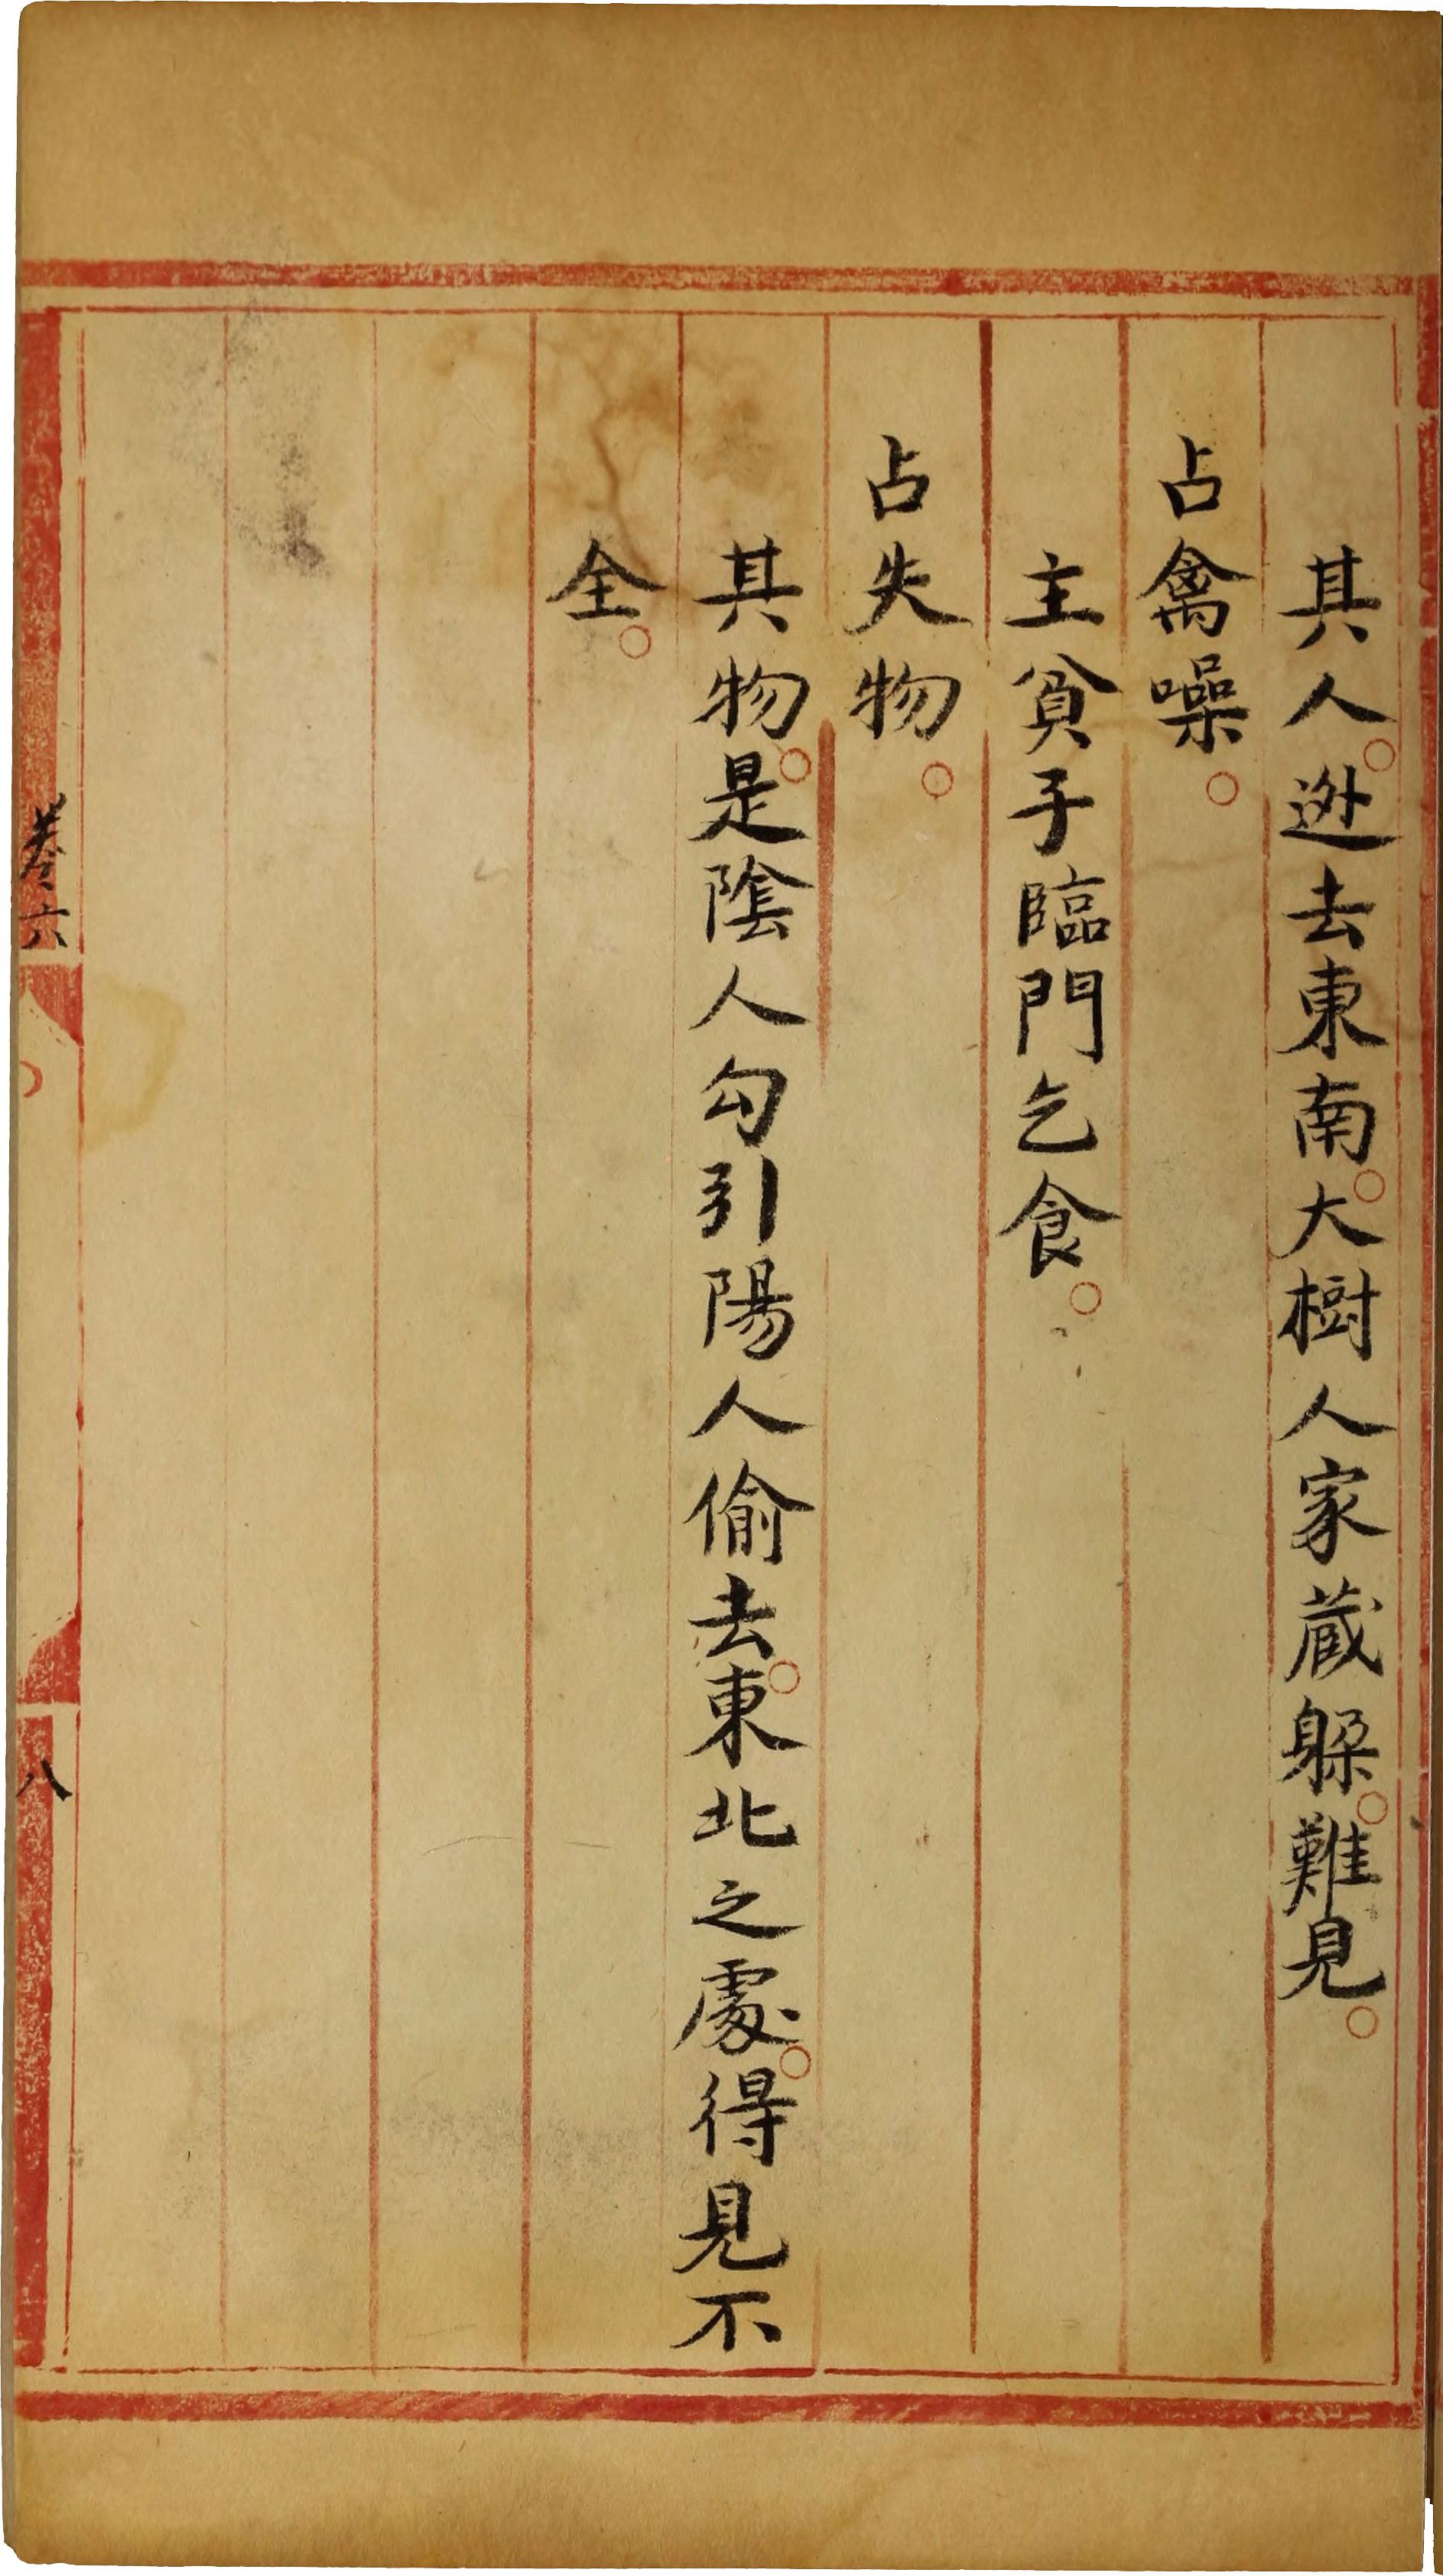 其人。迯去東南。大樹人家蔵躲。難見。
占禽噪。
主貧子臨門乞食。
占失物。
其物。是陰人勾引陽人偷去。東北之處。得見不
全。
卷六
八